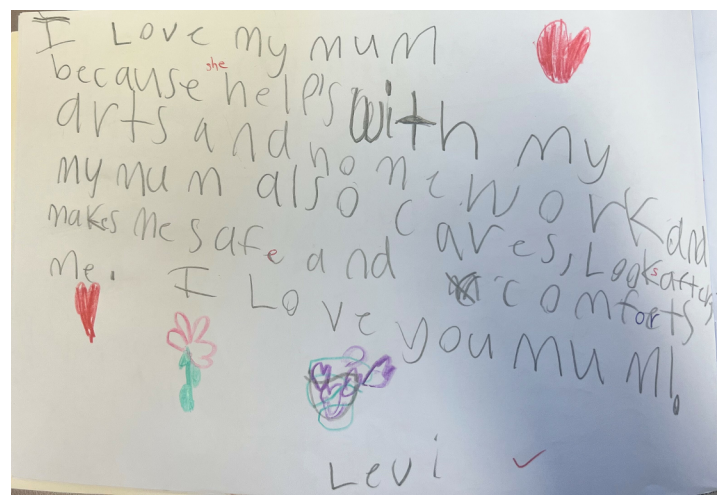 I Love my mum
because she help's with my
arts and homework and
my mum also cares, Looks after,
makes me safe and comforts
me. I Love you mum!
Levi